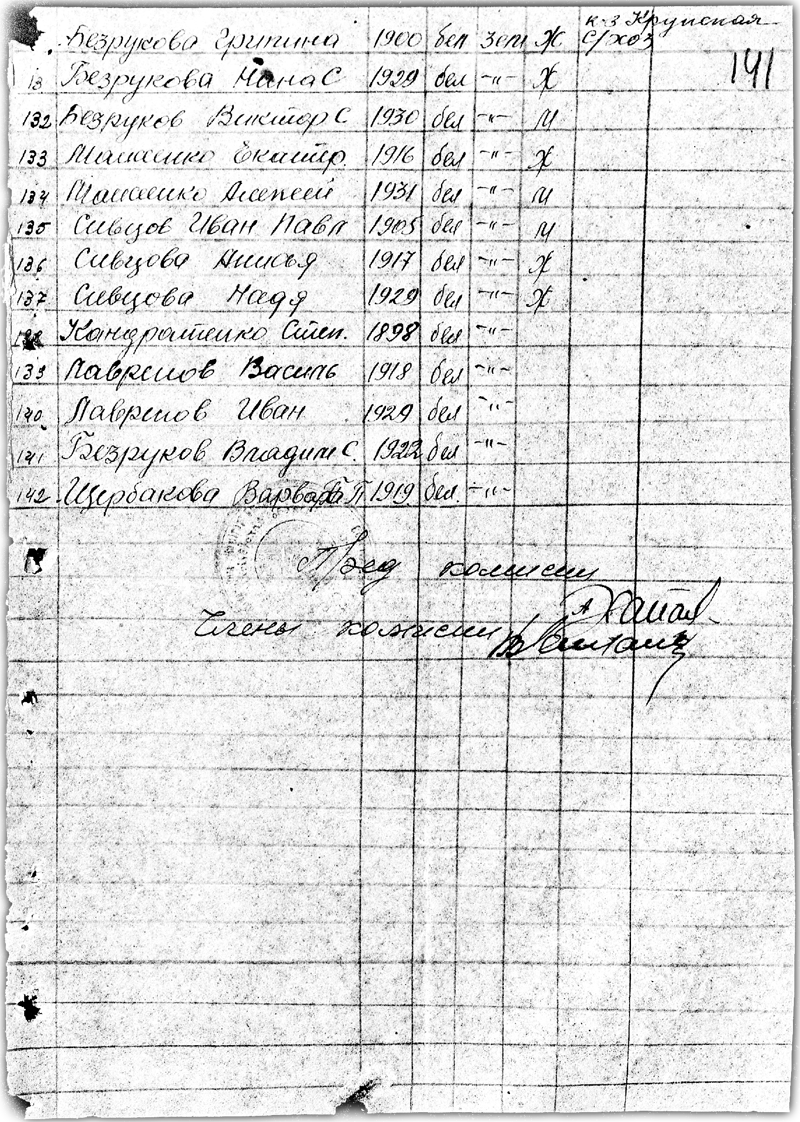 к-з Крупская
Безрукова Грипина 1900 бел зем Ж с/хоз
141
13 Безрукова Нина С 1929 бел -"- Ж
132 Безруков Виктор С 1930 бел -"- М
133 Екатер. 1916 бел -"- Ж
134 Алексей 1931 бел -"- М
135 Сивцов Иван Павл 1905 бел -"- М
136 Сивцова 1917 бел -"- Ж
137 Сивцова Надя 1929 бел -"- Ж
138 Кандратенко Степ. 1898 бел -"-
139 Лавренов Василь 1918 бел -"-
140 Лавренов Иван 1929 бел -"-
141 Безруков Владим С. 1922 бел -"-
142 Щербакова Варвара П 1919 бел. -"-
Пред комисии
Члены комисии